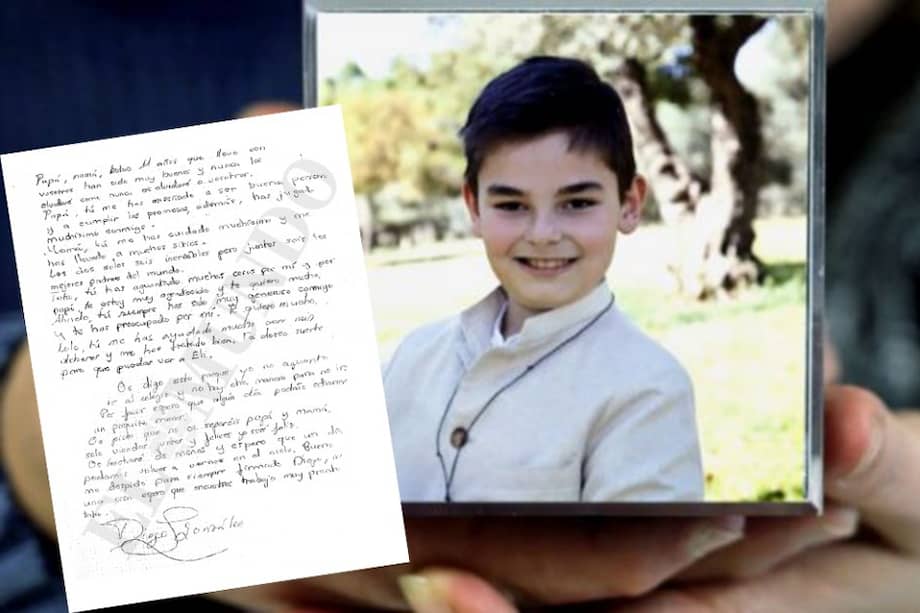 Papá, mamá, estos 11 años que llevo con
vosotros han sido muy buenos y nunca los
olvidaré como nunca os olvidaré a vosotros.
Papá, tú me has enseñado a ser buena persona
y a cumplir las promesas, además, has jugado
muchísimo conmigo.
Mamá, tú me has cuidado muchísimo y me
has llevado a muchos sitios.
Los dos sois increíbles pero juntos sois los
mejores padres del mundo.
Tata, tú has aguantado muchas cosas por mí y por
papá, te estoy muy agradecido y te quiero mucho.
Abuelo, tú siempre has sido muy generoso conmigo
y te has preocupado por mí. Te quiero mucho.
Lolo, tú me has ayudado mucho con mis
deberes y me has tratado bien. Te deseo suerte
para que puedas ver a Eli.
Os digo esto porque yo no aguanto
ir al colegio y no hay otra manera para no ir.
Por favor espero que algún día podáis odiarme
un poquito menos.
Os pido que no os separéis papá y mamá,
sólo viéndoos juntos y felices yo seré feliz.
Os echaré de menos y espero que un día
podamos volver a vernos en el cielo. Bueno,
me despido para siempre. Firmado Diego, a
una cosa espero que encuentres trabajo muy pronto
Tata.
Diego González
EL MUNDO